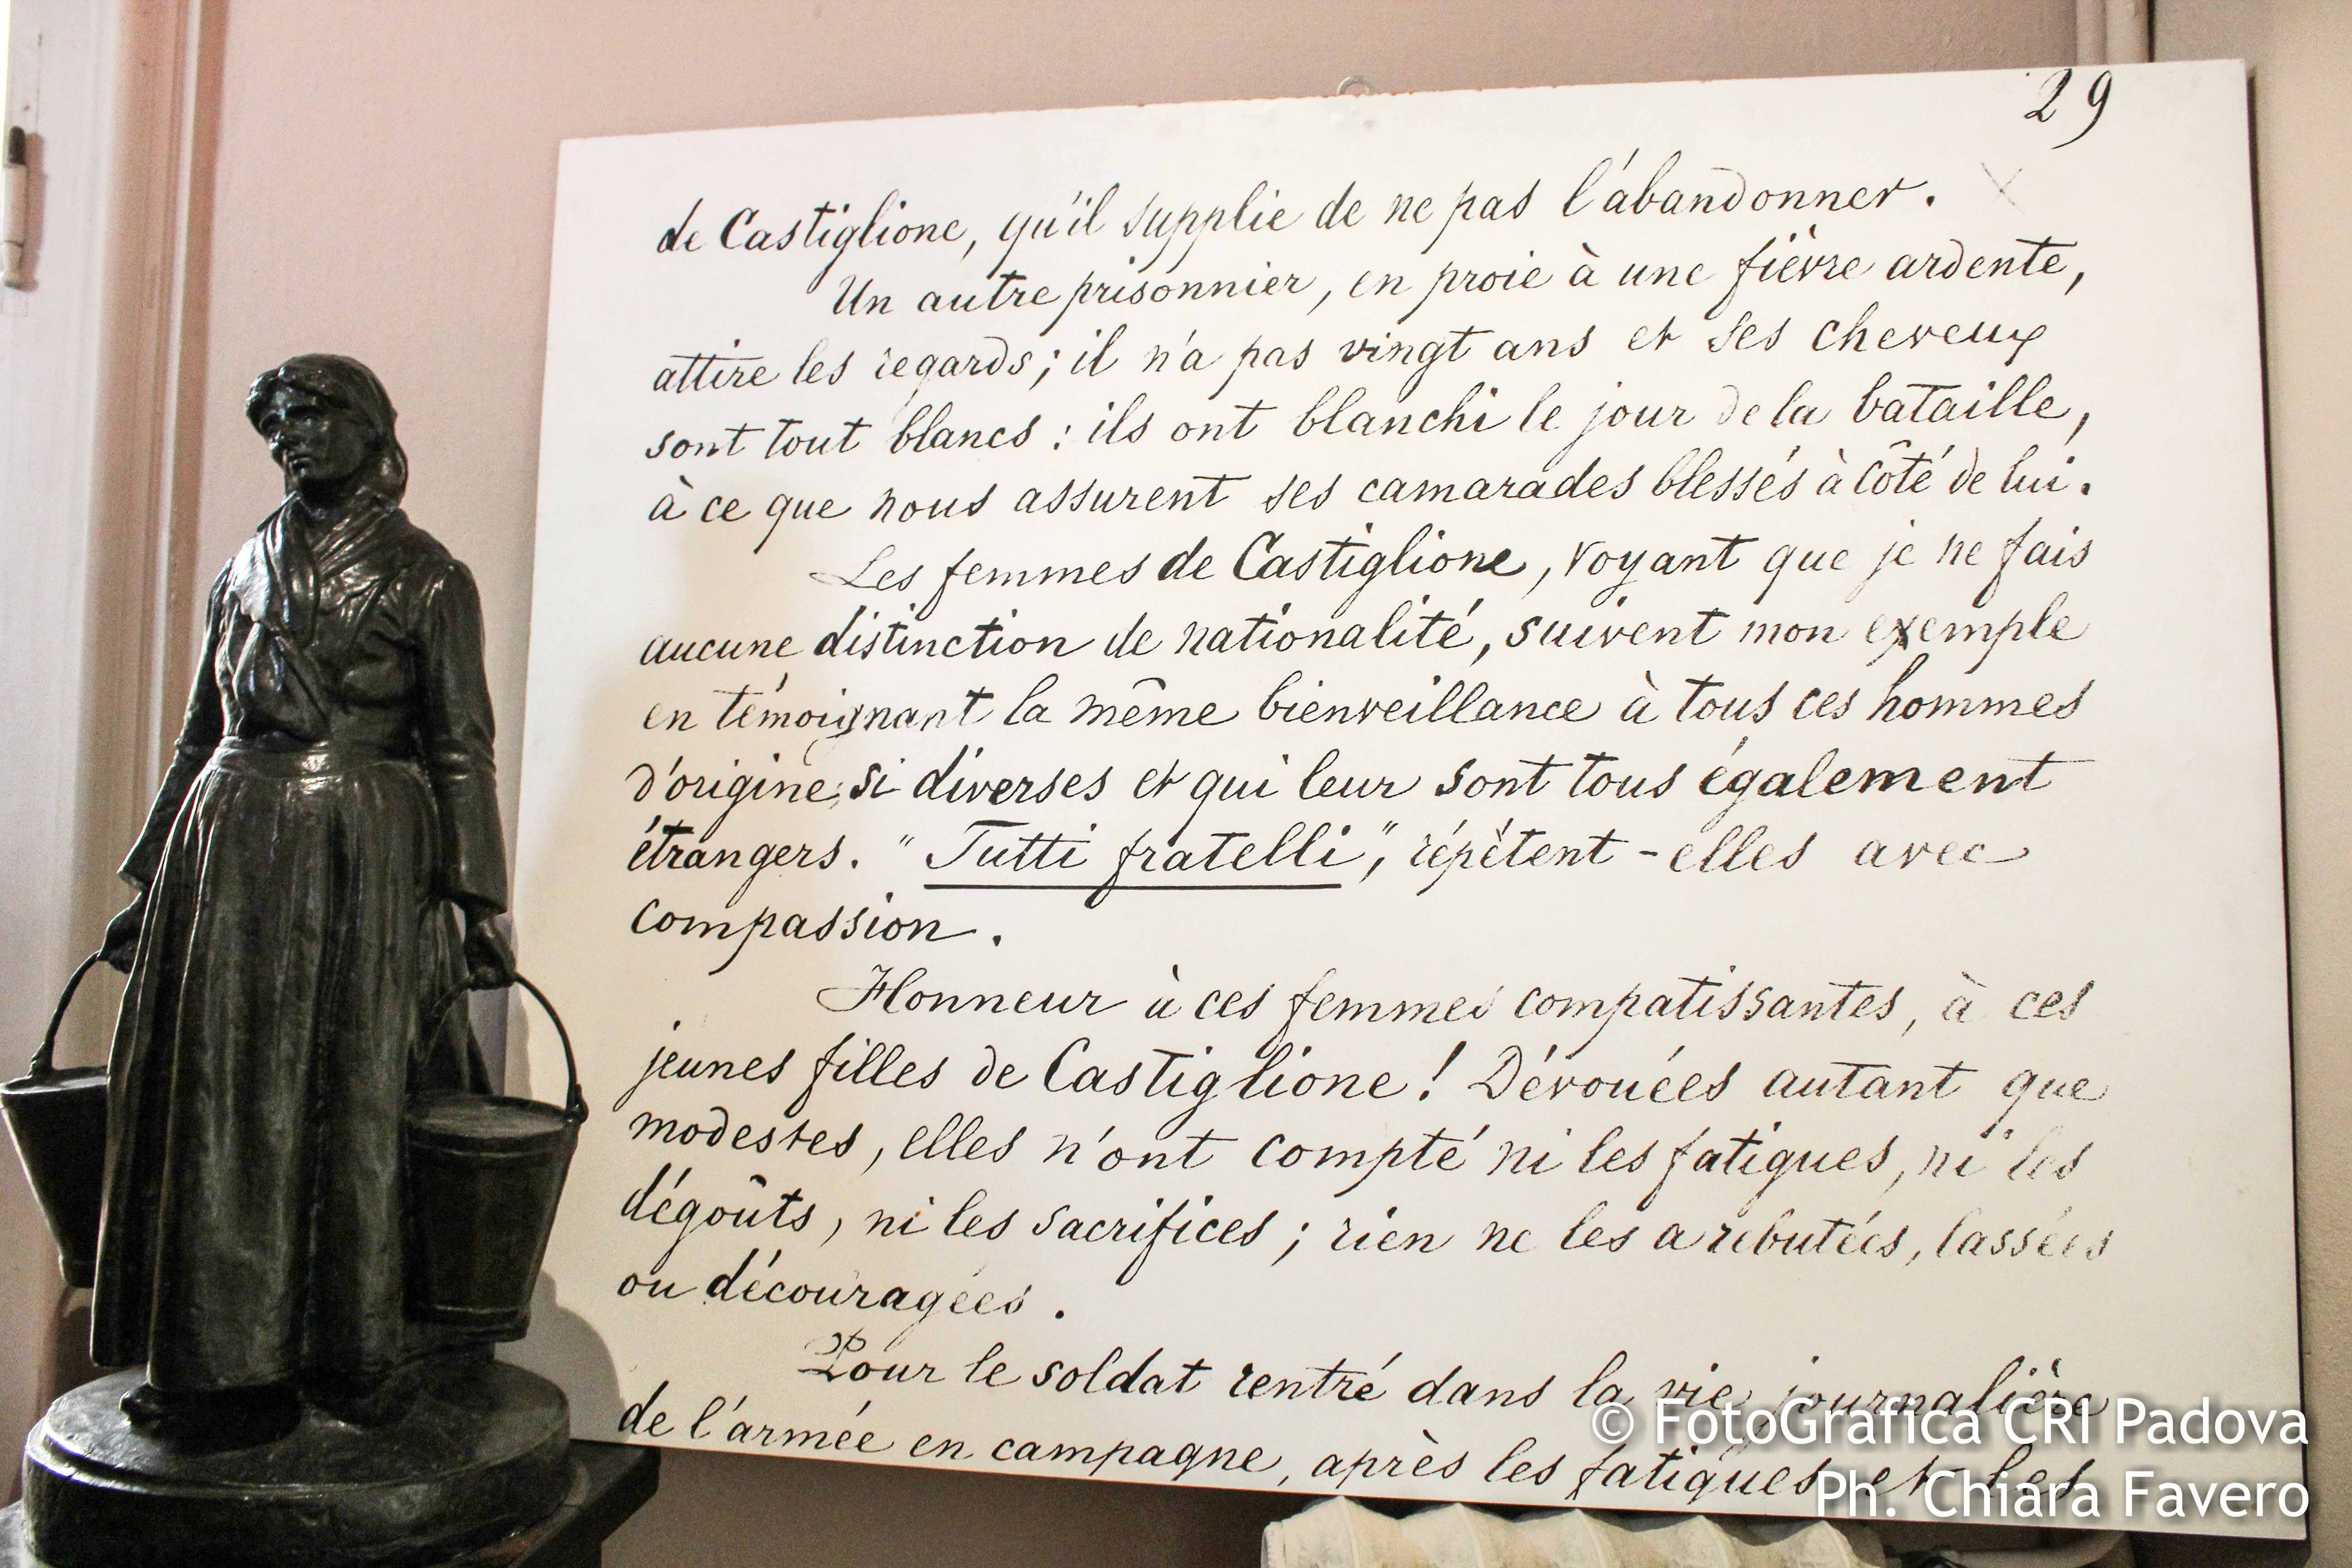 29
de Castiglione, qu'il supplie de ne pas l'abandonner.
Un autre prisonnier, en proie à une fièvre ardente,
attire les regards ; il n'a pas vingt ans et ses cheveux
sont tout blancs : ils ont blanchi le jour de la bataille,
à ce que nous assurent ses camarades blessés à côté de lui.
Les femmes de Castiglione, voyant que je ne fais
aucune distinction de nationalité, suivent mon exemple
en témoignant la même bienveillance à tous ces hommes
d'origine si diverses et qui leur sont tous également
étrangers. "Tutti fratelli", répètent-elles avec
compassion.
Honneur à ces femmes compatissantes, à ces
jeunes filles de Castiglione ! Dévouées autant que
modestes, elles n'ont compté ni les fatigues, ni les
dégoûts, ni les sacrifices ; rien ne les a rebutées, lassées
ou découragées.
Pour le soldat rentré dans la vie journalière
de l'armée en campagne, après les fatigues et les
© FotoGrafica CRI Padova
Ph. Chiara Favero